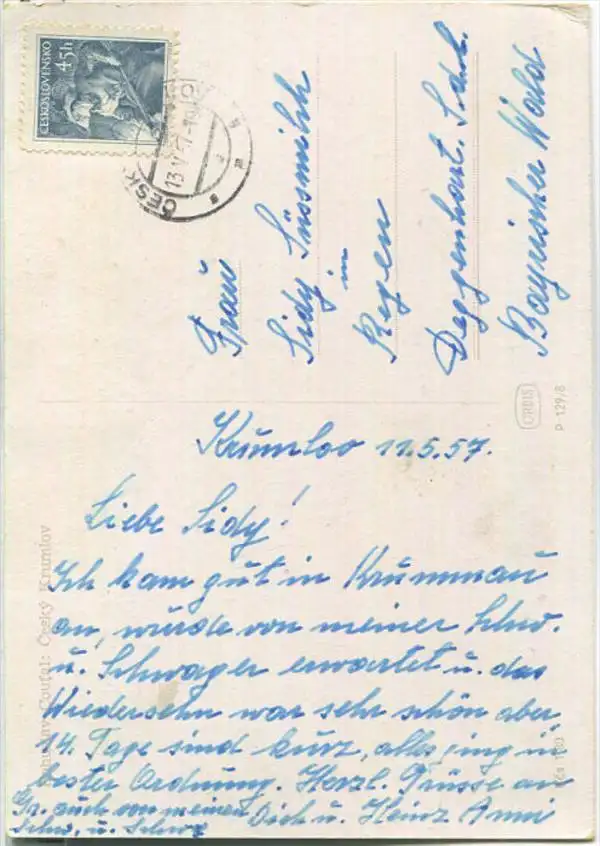 ČESKOSLOVENSKO
45h
ČESK
13.V.57-19
Frau
Sidy Süssmilch
in
Regen
Deggenhart. Sdl.
Bayrischer Wald
ORBIS
P 129/8
Krumlov 11.5.57.
Liebe Sidy!
Ich kam gut in Krummau
an, wurde von meiner Schw.
u. Schwager erwartet u. das
Wiedersehn war sehr schön aber
14 Tage sind kurz, alles ging in
bester Ordnung. Herzl. Grüsse an
Dich u. Heinz Anni
Gr. auch von meiner
Schw. u. Schwg
Coufal: Český Krumlov